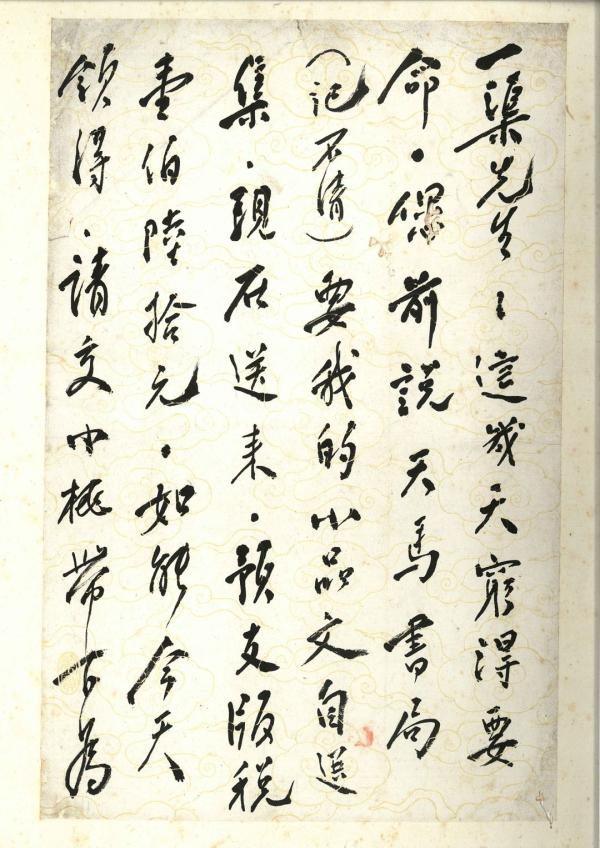 一渠先生：這幾天窮得要
命。傑前說天馬書局
（記不清）要我的小品文自選
集。現在送来。預支版税
壹伯陸拾元。如能今天
領得。請交小桃帶下為